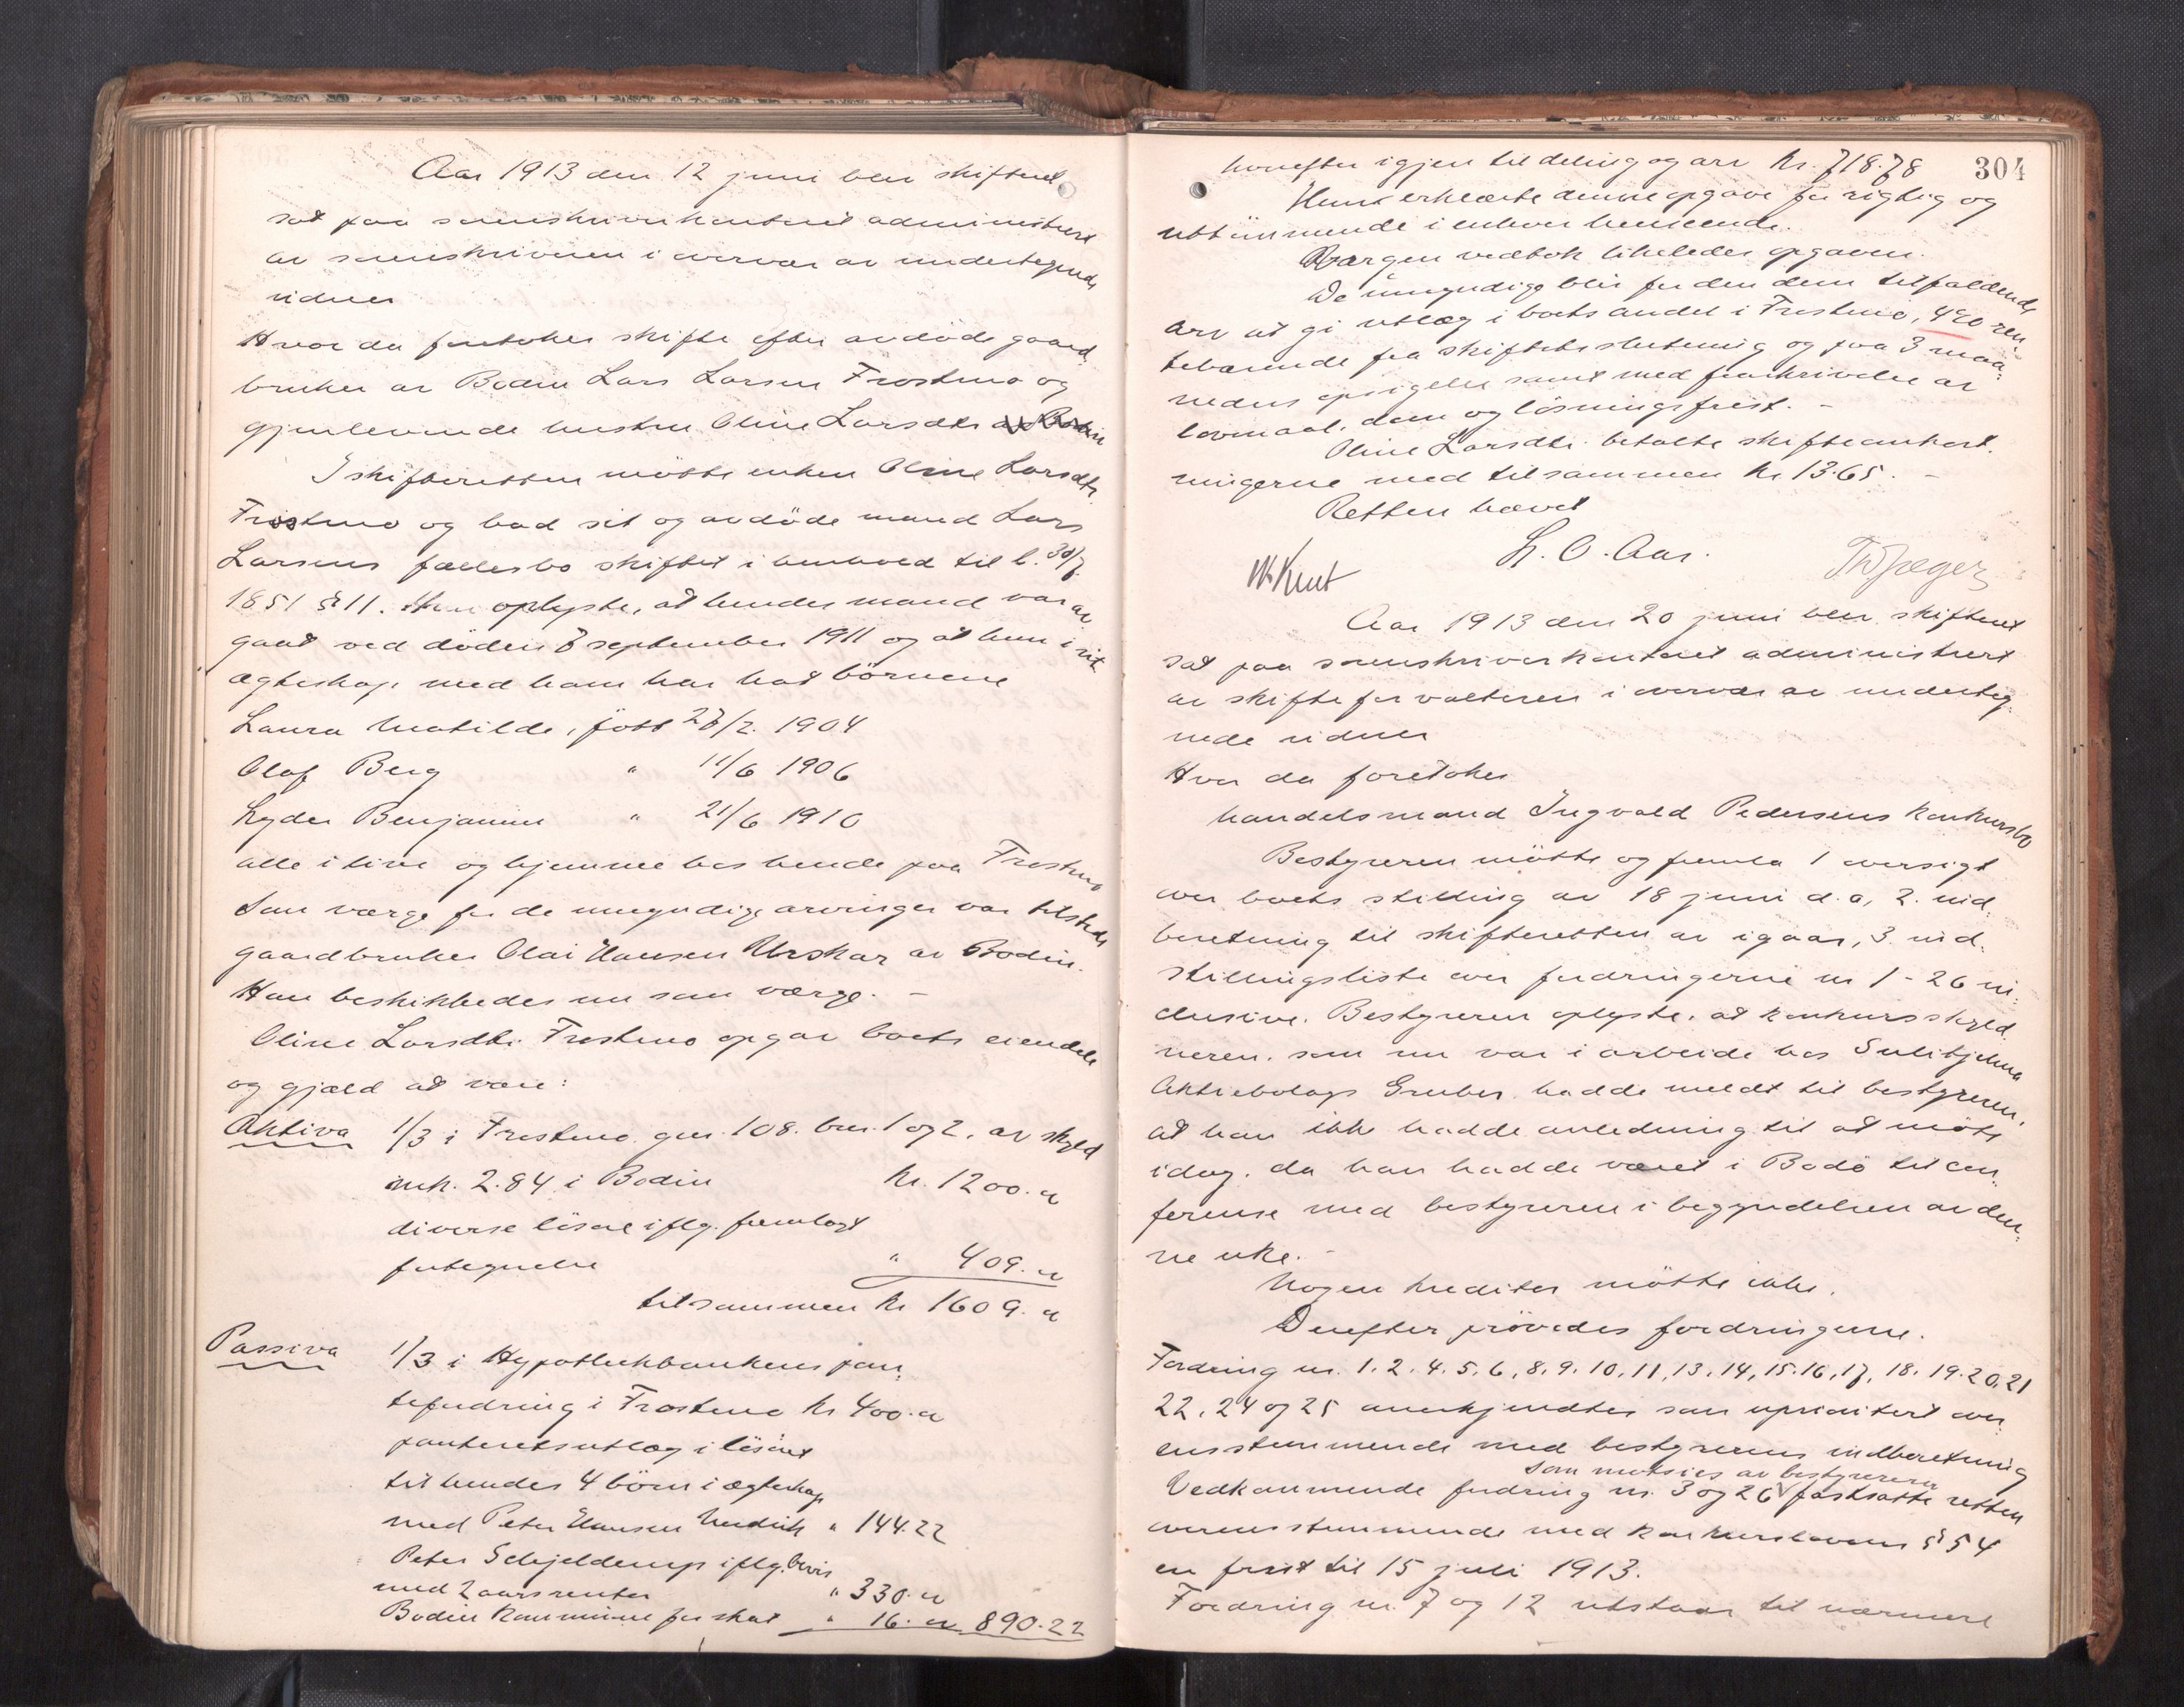 Aar 1913 den 12 juni blev skifteret
sat paa sorenskriverkontoret administrert
av sorenskriveren i overvær av undertegnede
vidner
Hvor da foretokes skifte efter avdöde gaard-
bruker av Bodin Lars Larsen Frostmo og
gjenlevende hustru Oline Larsdtr av Bodin
I skifteretten mötte enken Oline Larsdtr
Frostmo og bad sit og avdöde mand Lars
Larsens fællesbo skiftet i henhold til l. 30/7
1851 § 11. Hun oplyste, at hendes mand var av
gaat ved döden 7 september 1911 og at hun i sit
ægteskap med ham har hat börnene
Laura Matilde, fött 27/2. 1904
Olaf Berg " 11/6 1906
Lyder Benjamin " 21/6 1910
alle i live og hjemme hos hende paa Frostmo
Som værge for de umyndige arvinger var tilstede
gaardbruker Olai Hansen Urskar av Bodin.
Han beskikkedes nu som værge. –
Oline Larsdtr. Frostmo opgav boets eiendele
og gjæld at være:
Aktiva 1/3 i Frostmo gnr. 108. brn. 1 og 2, av skyld
mk. 2.84 i Bodin Kr. 1200. "
diverse lösöre iflg. fremlagt
fortegnelse " 409. "
tilsammen Kr 1609. "
Passiva 1/3 i Hypothekbankens pan-
tefordring i Frostmo Kr 400. "
panteretsutlæg i lösöret
til hendes 4 börn i ægteskap
med Peter Hansen " 144.22
Peter Schjelderup iflg. bevis
med 2 aars renter " 330. "
Bodin Kommune for skat " 16. " 890.22
304
hvorefter igjen til deling og arv Kr. 718.78
Hun erklærte denne opgave for rigtig og
uttömmende i enhver henseende.
Værgen vedtok likeledes opgaven.
De umyndige blir for den dem tilfaldende
arv at gi utlæg i boets andel i Frostmo, 4%o ren-
tebærende fra skiftets slutning og paa 3 maa-
neders opsigelse samt med fraskrivelse av
lovmaal, dom og lösningsfrist. –
Oline Larsdtr. betalte skifteomkost-
ningerne med tilsammen Kr 13.65. –
Retten hævet
L. O. Aas.
W. Knut
Th Jæger
Aar 1913 den 20 juni blev skifteret
sat paa sorenskriverkontoret administrert
av skifteforvalteren i overvær av underteg-
nede vidner
Hvor da foretokes
handelsmand Ingvald Pedersens konkursbo
Bestyreren mötte og fremla 1 oversigt
over boets stilling av 18 juni d.a, 2. ind-
beretning til skifteretten av igaar, 3. ind-
stillingsliste over fordringerne nr 1 - 26 in-
clusive. Bestyreren oplyste, at konkursskyld-
neren, som nu var i arbeide hos Sulitjelma
Aktiebolags Gruber, hadde meldt til bestyreren,
at han ikke hadde anledning til at möte
idag, da han hadde været i Bodö til con-
ferense med bestyreren i begyndelsen av den-
ne uke. –
Nogen kreditor mötte ikke.
Derefter prövedes fordringerne.
Fordring nr. 1. 2. 4. 5. 6, 8, 9. 10, 11, 13, 14, 15. 16, 17, 18. 19. 20. 21
22, 24 og 25 anerkjendtes som uprioritert over-
ensstemmende med bestyrerens indberetning
som motsies av bestyreren
Vedkommende fordring nr. 3 og 26 fastsatte retten
overensstemmende med konkurslovens § 54
en frist til 15 juli 1913.
Fordring nr. 7 og 12 utstaar til nærmere